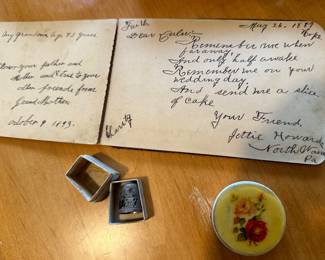 my grandson age 93 years
Honor your father and
Mother and kind to your
other friends from
Grand Mother
October 9 1893.
Faith
May 26, 1887
Hope
Dear
Remember me when
far away,
And only half awake
Remember me on your
wedding day
And send me a slice
of cake
Your Friend,
Jettie Howard
North
Pa
Charity